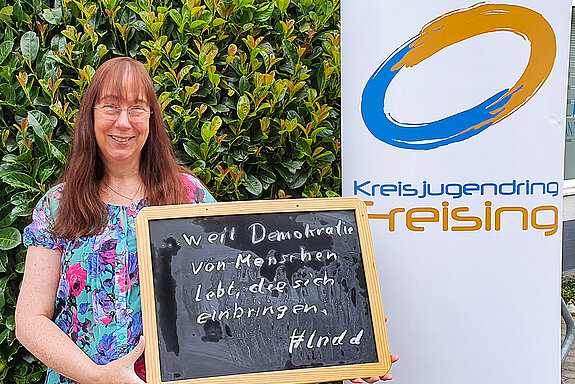 weil Demokratie
von Menschen
lebt, die sich
einbringen.
#lndd
Kreisjugendring
Freising